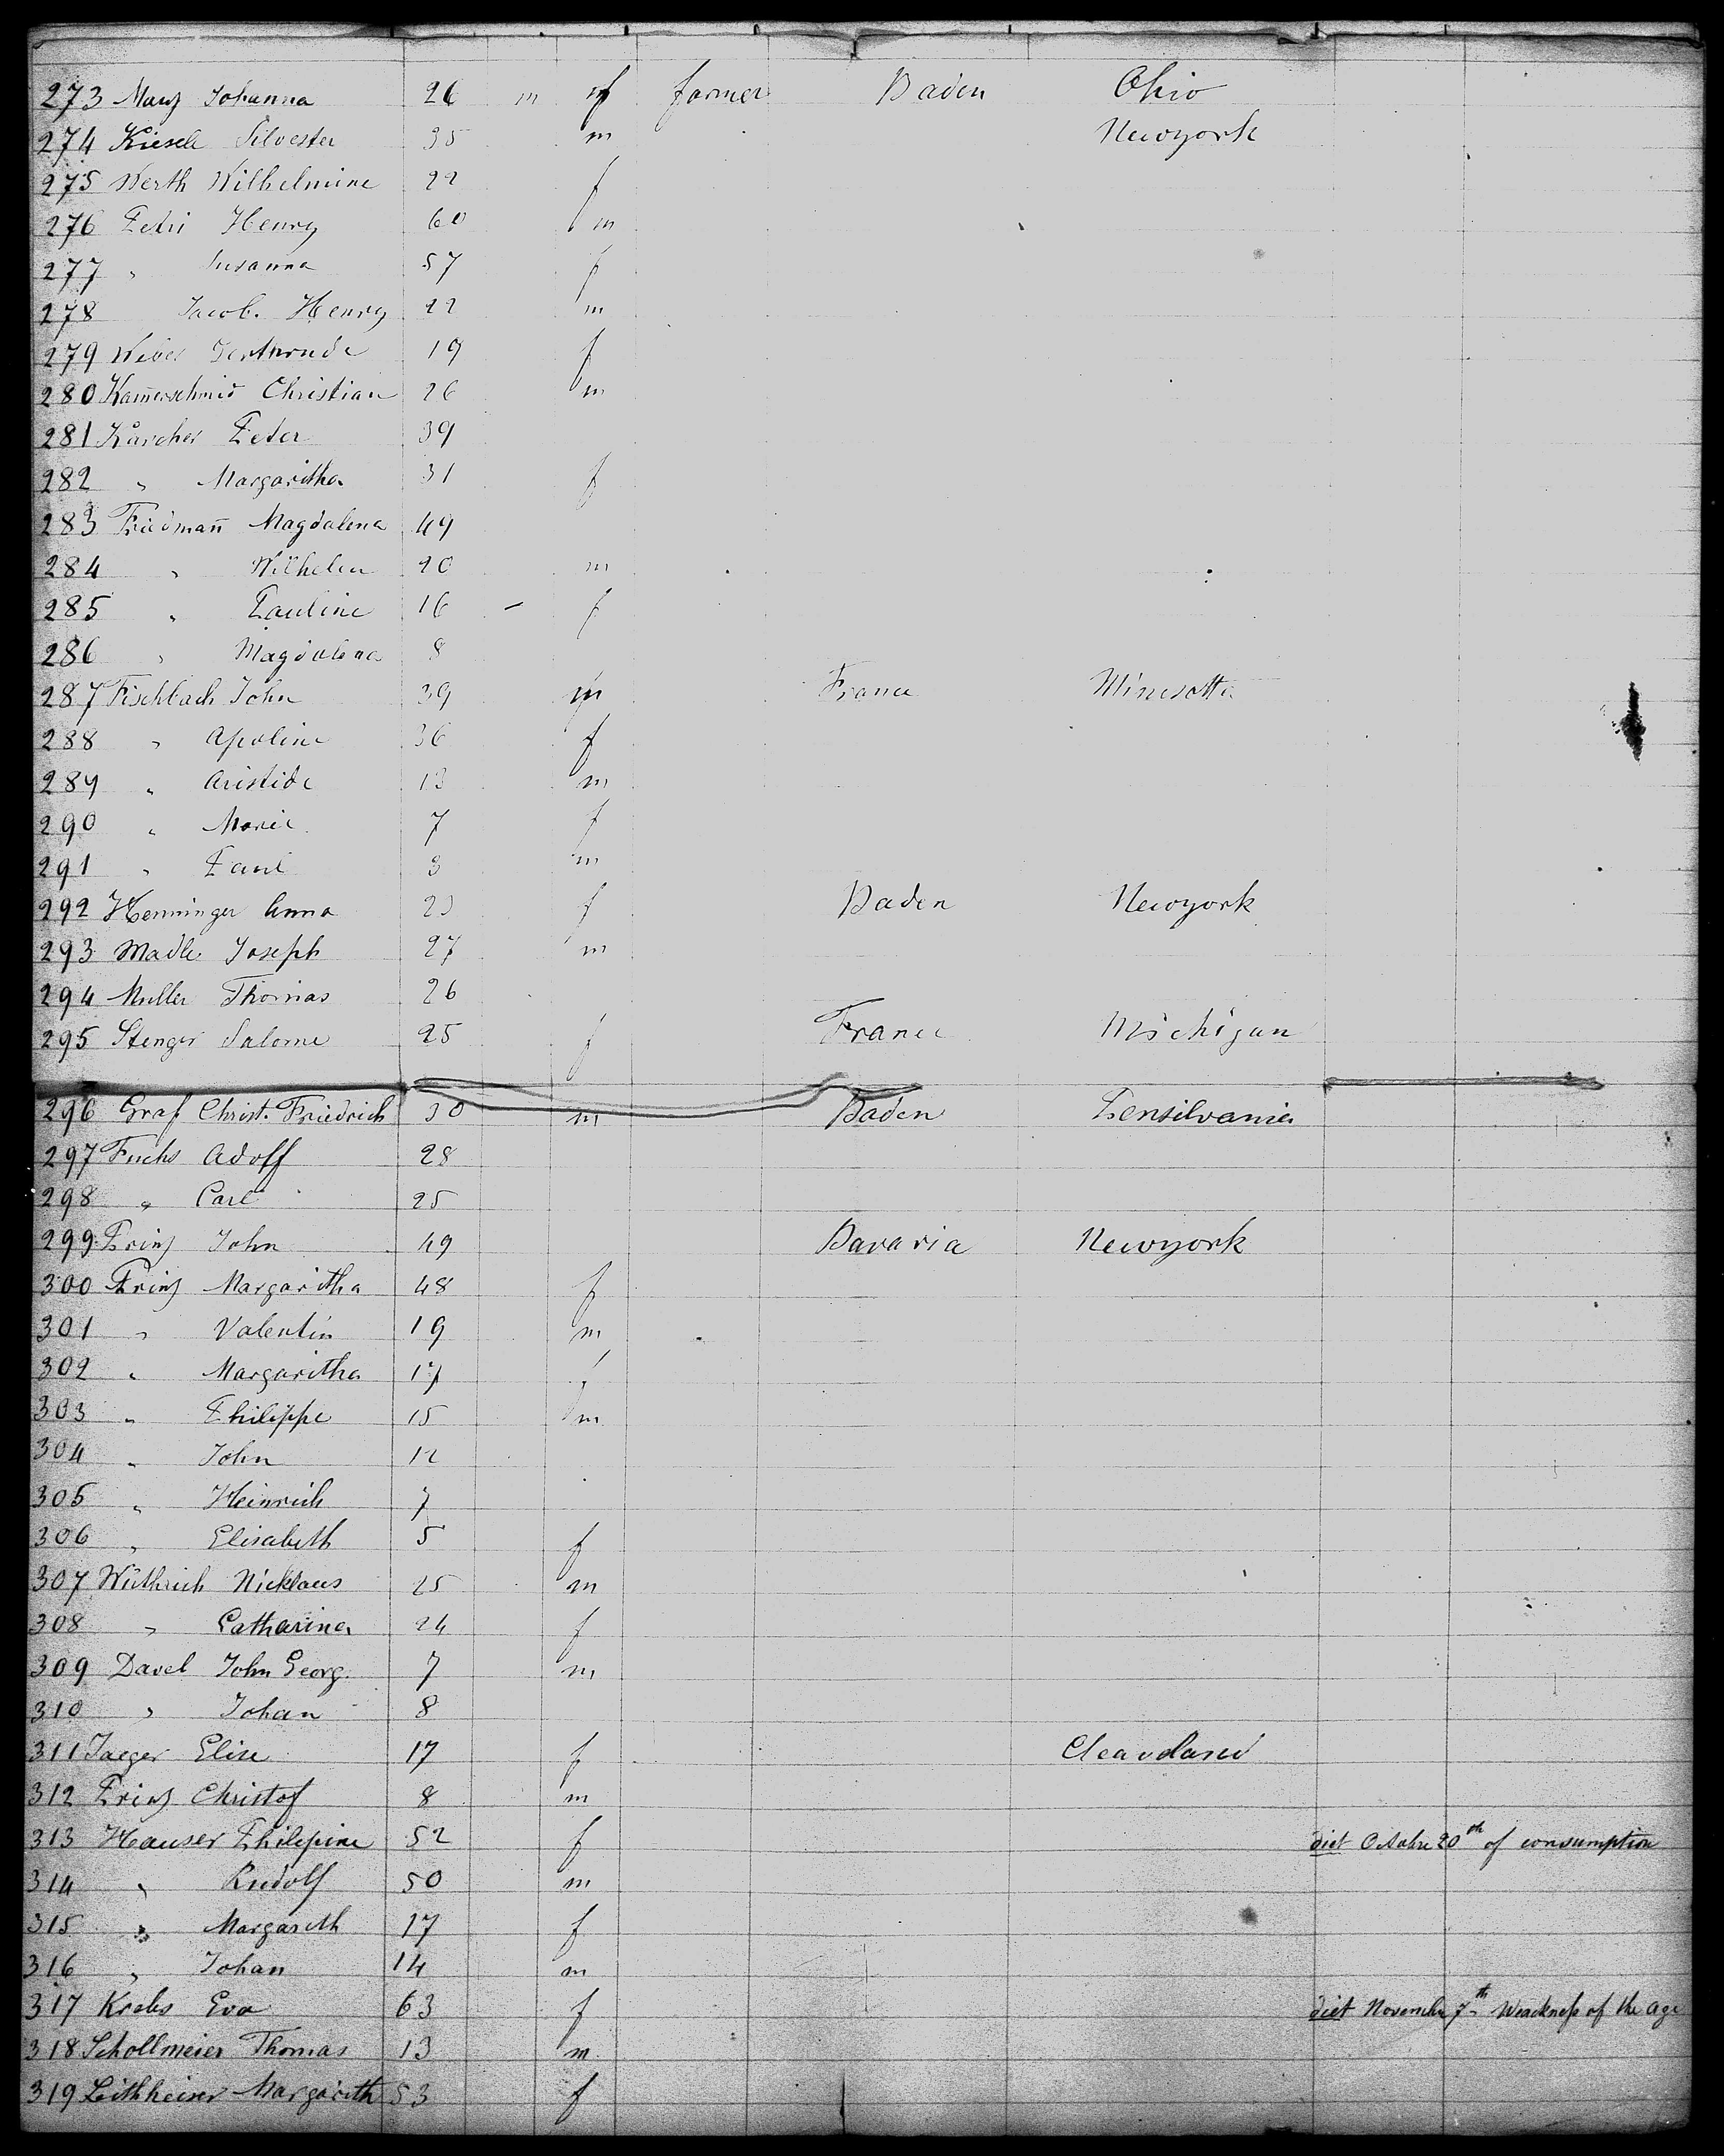 273 Marz Johanna 26 m f farmer Baden Ohio
274 Kiesele Silvester 35 m Newyork
275 Werth Wilhelmine 22 f
276 Petri Henry 60 m
277 " Susanna 57 f
278 Jacob. Henry 22 m
279 Weber Gertrude 19 f
280 Kam̄erschmid Christian 26 m
281 Karcher Peter 39
282 " Margaritha 31 f
283 Friedman̄ Magdalena 49
284 " Wilhelm 20 m
285 " Pauline 16 - f
286 " Magdalena 8
287 Fischbach John 39 m France Minesotta
288 " Apoline 36 f
289 " Aristide 13 m
290 " Marie 7 f
291 " Paul 3 m
292 Henninger Anna 23 f Baden Newyork
293 Madle Joseph 27 m
294 Muller Thomas 26
295 Stenger Salome 25 f France Michigan
296 Graf Christ. Friedrich 30 m Baden Pensilvania
297 Fuchs Adolf 28
298 " Carl 25
299 Prinz John 49 Bavaria Newyork
300 Prinz Margaritha 48 f
301 " Valentin 19 m
302 " Margaritha 17 f
303 " Philippe 15 m
304 " John 12
305 " Heinrich 7
306 " Elisabeth 5 f
307 Wüthrich Nicklaus 25 m
308 " Catharina 24 f
309 Davel John Georg. 7 m
310 " Johan 8
311 Jaeger Elise 17 f Cleaveland
312 Prinz Christof 8 m
313 Hauser Philepine 52 f diet Octobre 20th of consumption
314 " Rudolf 50 m
315 " Margareth 17 f
316 " Johan 14 m
317 Krebs Eva 63 f diet November 7th Weackness of the age
318 Schollmeier Thomas 13 m
319 Leithheiser Margarith 53 f